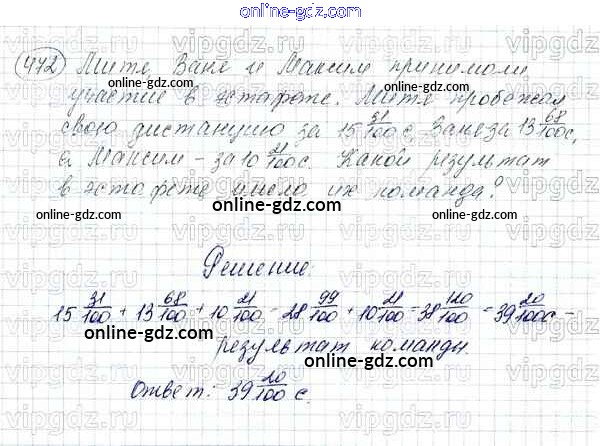 online-gdz.com
472 Митя, Ваня и Максим принимали
участие в эстафете. Митя пробежал
свою дистанцию за 15 31/100 с, Ваня за 13 68/100 с,
а Максим – за 10 21/100 с. Какой результат
в эстафете имела их команда?
Решение.
15 31/100 + 13 68/100 + 10 21/100 = 28 99/100 + 10 21/100 = 38 120/100 = 39 20/100 с –
результат команды.
Ответ: 39 20/100 с.
online-gdz.com
online-gdz.com
online-gdz.com
online-gdz.com
online-gdz.com
online-gdz.com
vipgdz.ru